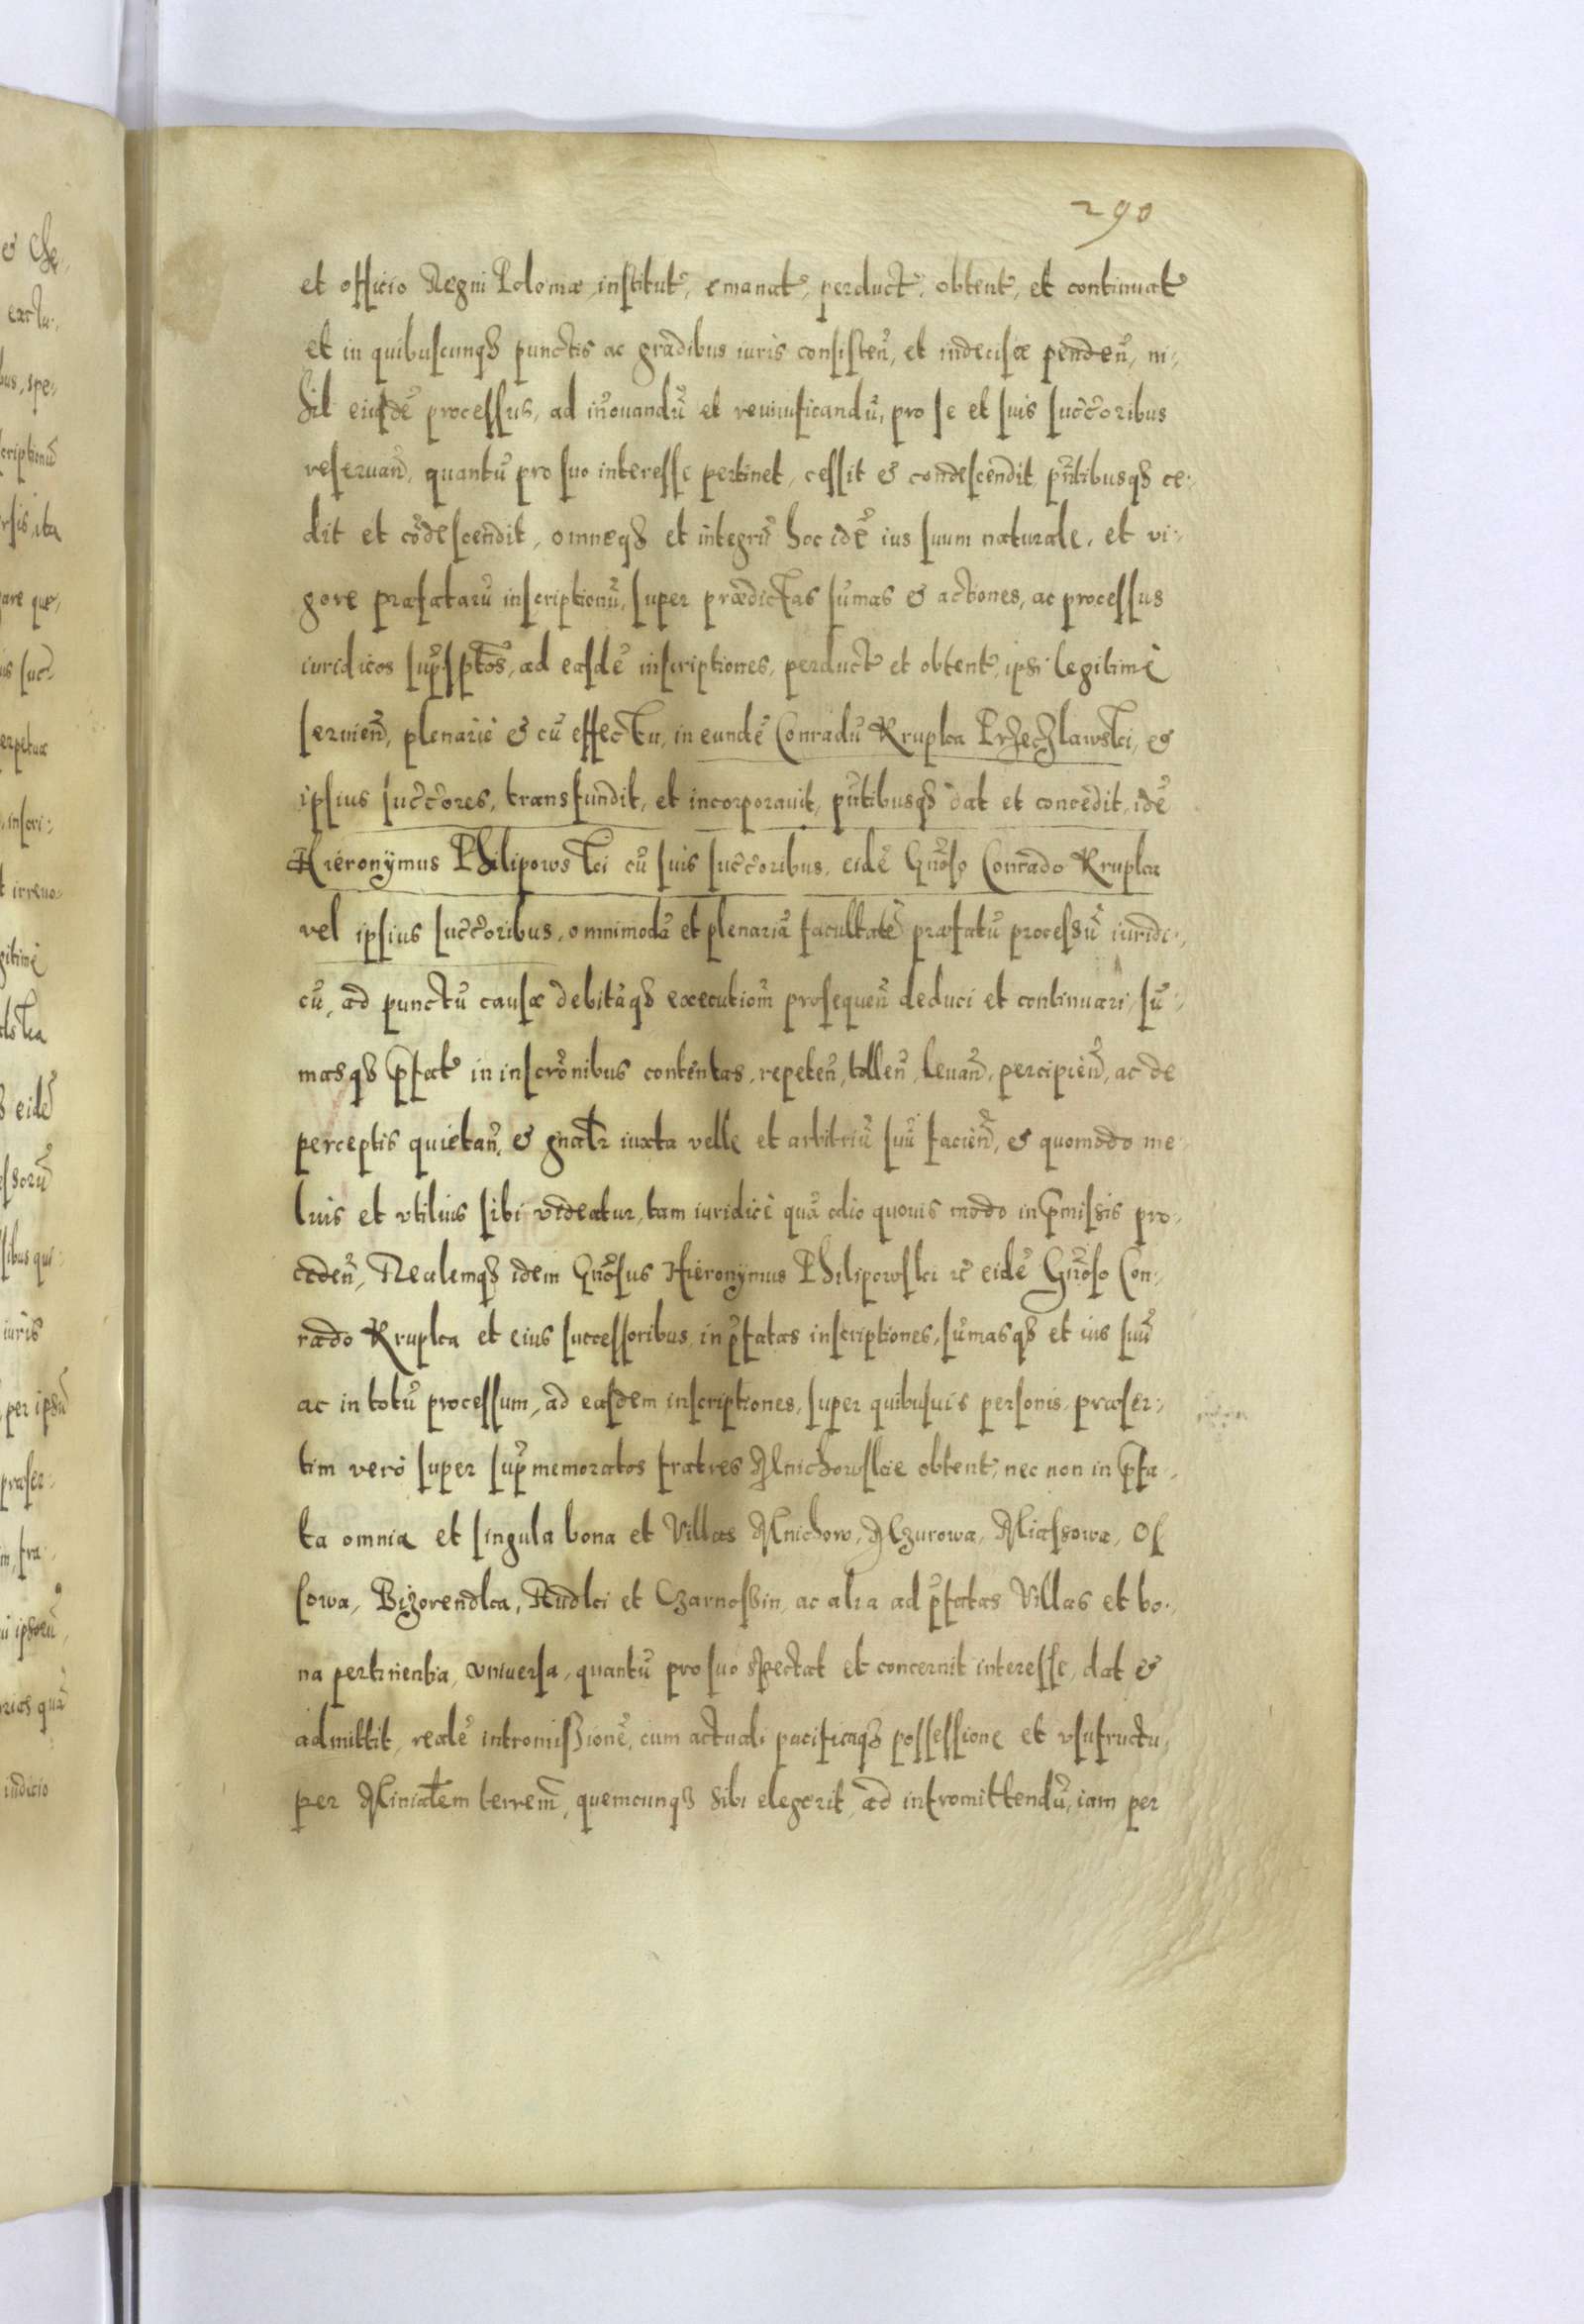 290
et officio Regni Poloniæ, institut̃, emanat̃, perduct̃, obtent̃, et continuat̃
et in quibuscunqȝ punctis ac gradibus iuris consisteñ, et indecisæ pendeñ, ni-
hil eiusdẽ processus, ad iñouandũ et reuiuificandũ, pro se et suis succ̃oribus
reseruañ, quantũ pro suo interesse pertinet, cessit & condescendit, pñtibusqȝ ce-
dit et cõdescendit, omneqȝ et integrũ hoc idẽ ius suum naturale, et vi-
gore præfatarũ inscriptionũ, super prædictas sum̃as & actiones, ac processus
iuridicos sup̃sptos̃, ad easdẽ inscriptiones, perduct̃ et obtent̃, ipsi legitimè
seruieñ, plenariè & cũ effectu, in eundẽ Conradũ Krupka Przeczlawski, &
ipsius succ̃ores, transfundit, et incorporauit, pñtibusqȝ dat et concedit, idẽ
Hieronÿmus Philipowski cũ suis succ̃oribus, eidẽ Gñoso Conrado Krupka
vel ipsius succ̃oribus, omnimodã et plenariã facultatẽ præfatũ processũ iuridi-
cũ, ad punctũ causæ debitãqȝ executiom̃ prosequeñ deduci et continuari, sum̃-
masqȝ p̃fat̃ in inscrõnibus contentas, repeteñ, tolleñ, leuañ, percipieñ, ac de
perceptis quietañ, & gñalr̃ iuxta velle et arbitriũ suũ facieñ, & quomodo me-
lius et vtilius sibi videatur, tam iuridicè quã alio quouis modo in p̃missis pro-
cedeñ, Realemqȝ idem Gñosus Hieronÿmus Philipowski rc̃ eidẽ Gñoso Con-
rado Krupka et eius successoribus, in p̃fatas inscriptiones, sum̃asqȝ et ius suũ
ac in totũ processum, ad easdem inscriptiones, super quibusuis personis, præser-
tim verò super sup̃memoratos fratres Mnichowskie obtent̃, nec non in p̃fa-
ta omnia et singula bona et Villas Mnichow, Mzurowa, Miassowa, Os
sowa, Bizorendka, Rudki et Czarnossin, ac alia ad p̃fatas Villas et bo-
na pertinentia, vniuersa, quantũ pro suo spectat et concernit interesse, dat &
admittit, realẽ intromissionẽ, cum actuali pacificaqȝ possessione et vsufructu,
per Minialem terrem̃, quemcunqȝ sibi elegerit, ad intromittendũ, iam per